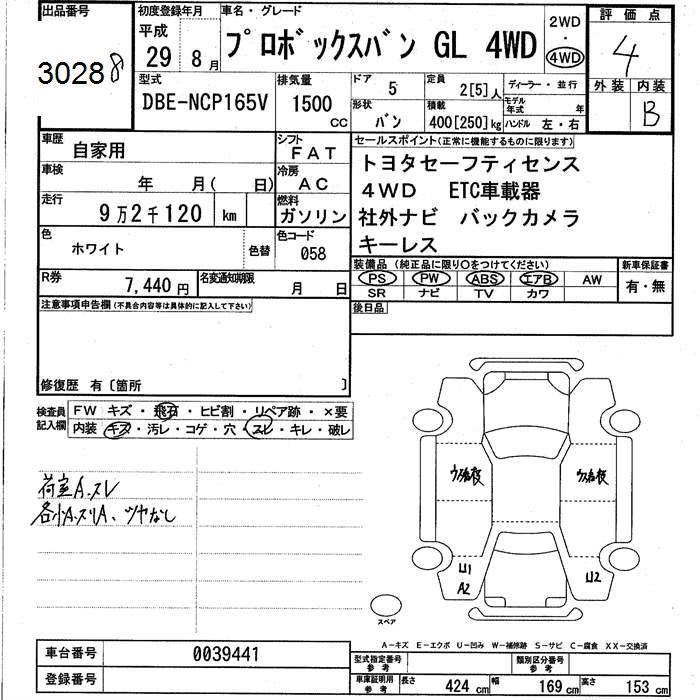 出品番号
30288
初度登録年月
平成
29年 8月
車名・グレード
プロボックスバン GL 4WD
2WD
・
4WD
評価点
4
外装 内装
B
型式
DBE-NCP165V
排気量
1500 cc
ドア 5
形状 バン
定員 2[5]人
積載 400[250]kg
ディーラー・並行
モデル年式 年
ハンドル 左・右
車歴 自家用
車検 年 月( 日)
走行 9万2千120 km
色 ホワイト 色替
シフト FAT
冷房 AC
燃料 ガソリン
色コード 058
セールスポイント(正常に機能するものに限ります)
トヨタセーフティセンス
4WD ETC車載器
社外ナビ バックカメラ
キーレス
装備品(純正品に限り○をつけてください)
PS PW ABS エアB AW
SR ナビ TV カワ
新車保証書
有・無
後日品
R券 7,440円
名変通知期限 月 日
注意事項申告欄(不具合内容等は具体的に記入して下さい)
修復歴 有〔箇所 〕
検査員記入欄
FW キズ・飛石・ヒビ割・リペア跡・×要
内装 キズ・汚レ・コゲ・穴・スレ・キレ・破レ
荷室A.スレ
各小A.スリA、ツヤなし
U1
A2
U2
スペア
A-キズ E-エクボ U-凹み W-補修跡 S-サビ C-腐食 XX-交換済
車台番号 0039441
登録番号
型式指定番号参考
類別区分番号参考
車庫証明用参考 長さ 424cm 幅 169cm 高さ 153cm